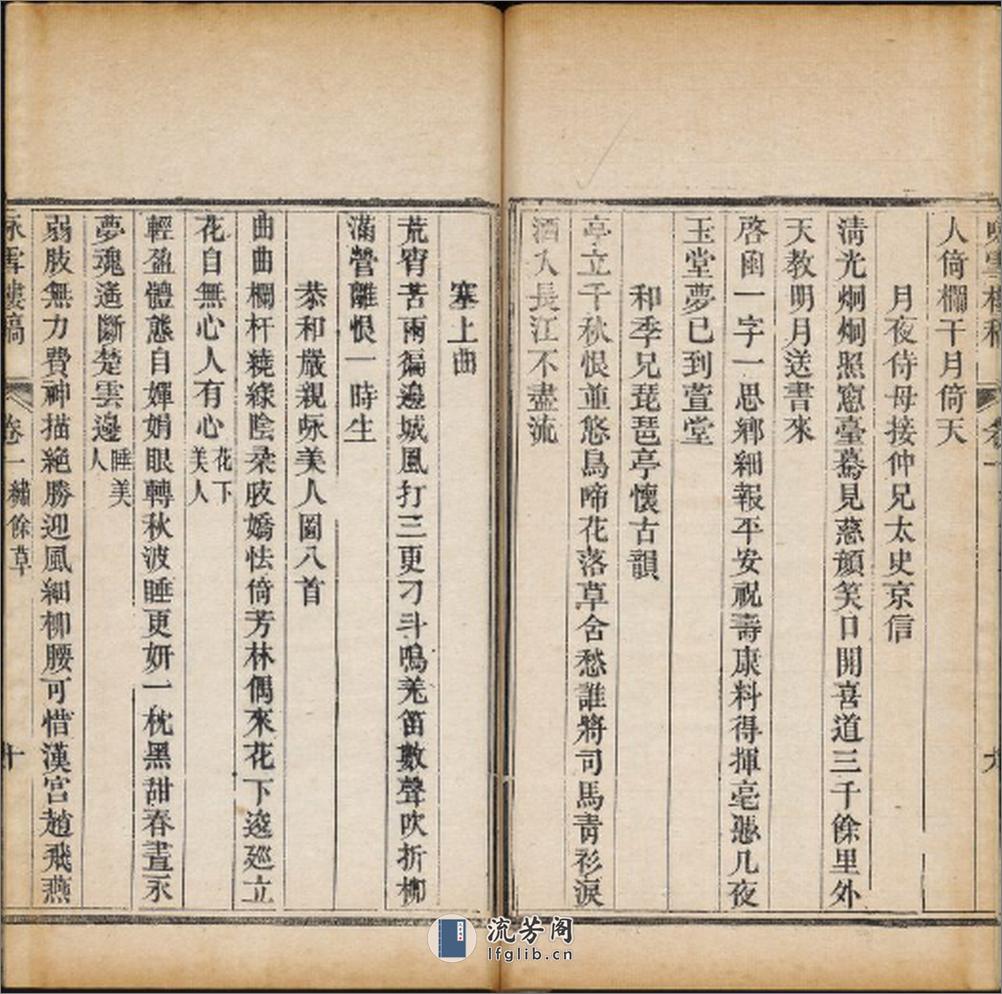 人倚欄干月倚天
月夜侍母接仲兄太史京信
淸光炯炯照窻臺驀見慈顏笑口開喜道三千餘里外
天敎明月送書來
啓函一字一思鄕細報平安祝壽康料得揮亳凴几夜
玉堂夢已到萱堂
和季兄琵琶亭懷古韻
亭立千秋恨並悠鳥啼花落草舍愁誰將司馬靑衫淚
酒入長江不盡流
九
塞上曲
荒宵苦雨徧邊城風打三更刁斗鳴羌笛數聲吹折栁
滿營離恨一時生
恭和嚴親咏美人圖八首
曲曲欄杆繞綠陰柔肢嬌怯倚芳林偶來花下逡廵立
花自無心人有心花下美人
輕盈體態自嬋娟眼轉秋波睡更妍一枕黑甜春晝永
夢魂遙斷楚雲邊睡美人
弱肢無力費神描絕勝迎風細栁腰可惜漢宮趙飛燕
咏雪樓稿 卷一繡餘草 十
流芳阁
lfglib.cn